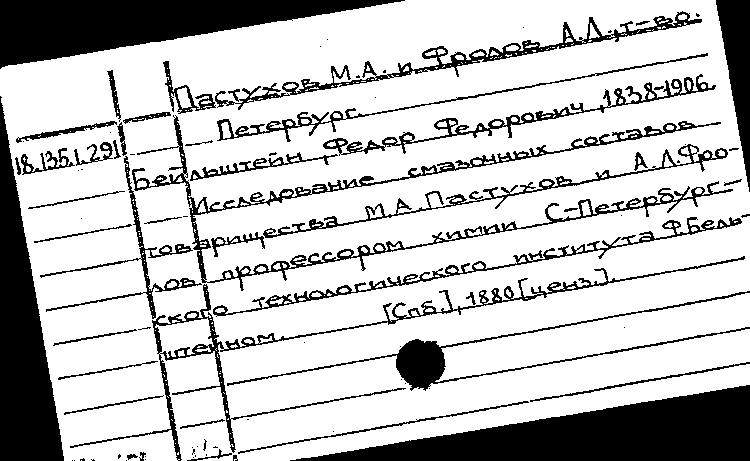 Пастухов М.А. и Фролов А.Л., т-во.
Петербург.
18.135.1.291
Бейльштейн, Федор Федорович, 1838-1906.
Исследование смазочных составов
товарищества М.А. Пастухов и А.Л. Фро-
лов профессором химии С-Петербург-
ского технологического института Ф. Бель-
штейном. [Спб.], 1880 [ценз.].